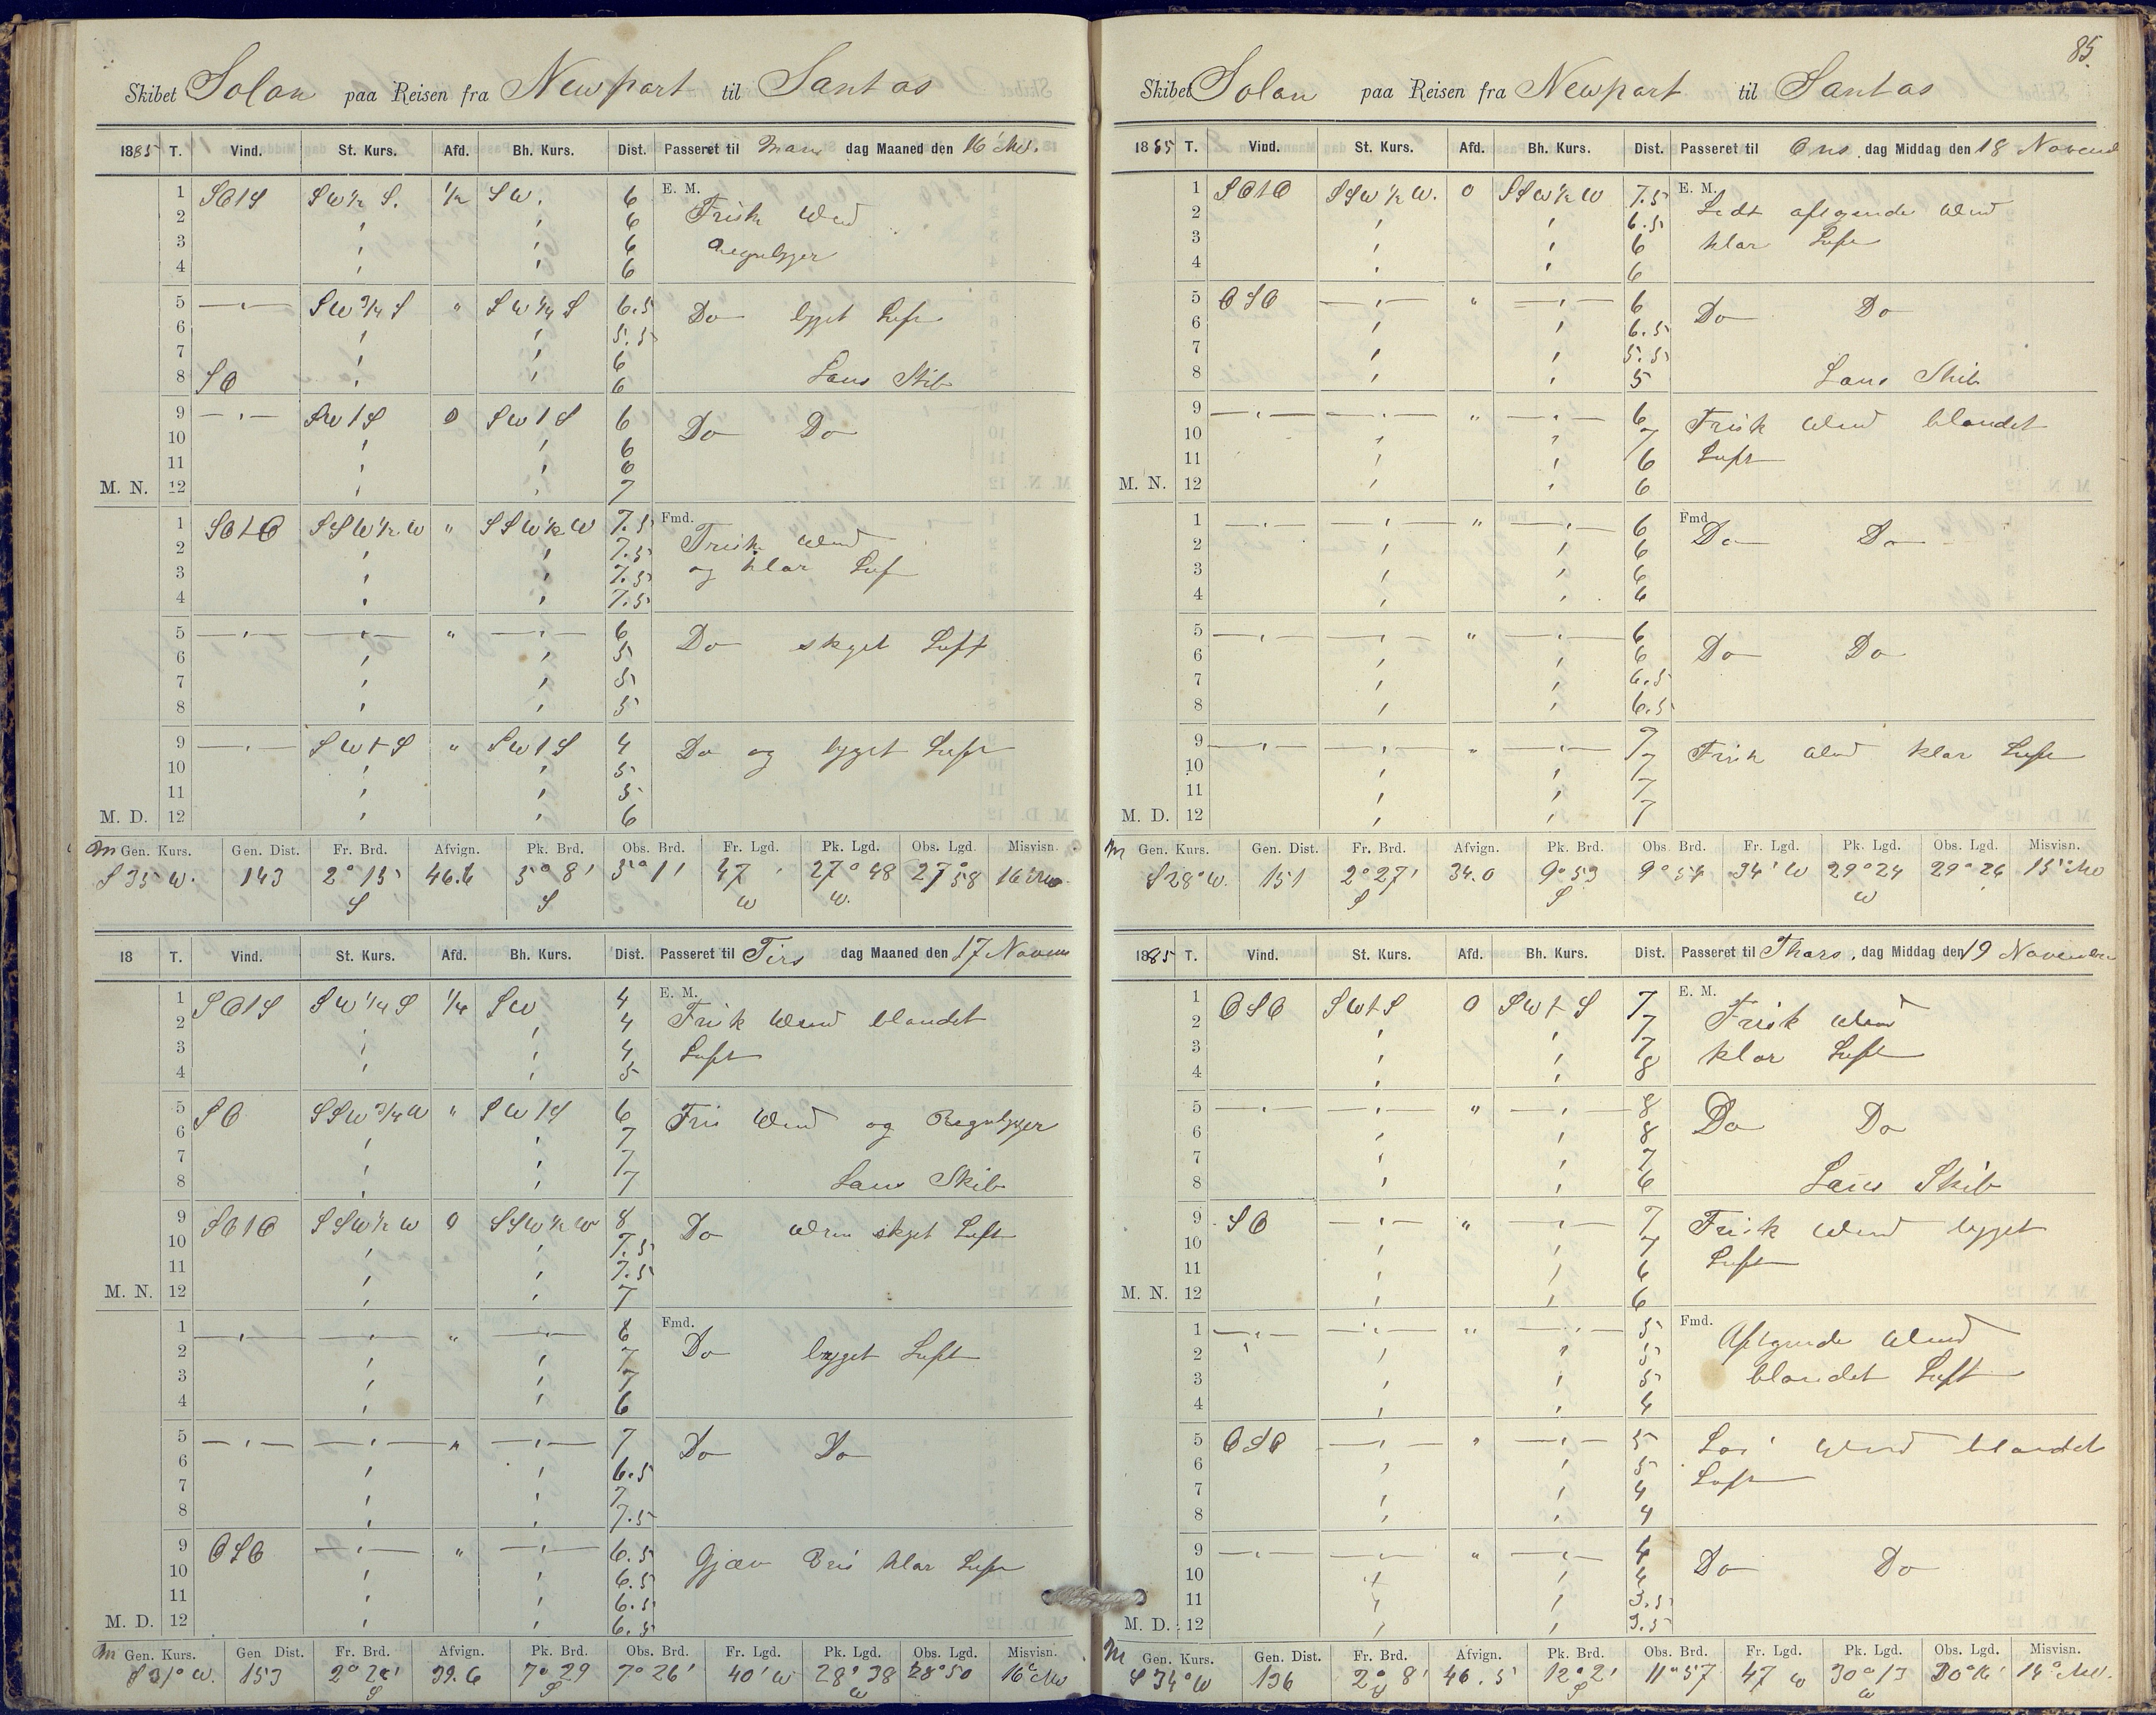 Skibet Solon paa Reisen fra Newport til Santos
1885 T. Vind. St. Kurs. Afd. Bh. Kurs. Dist. Passeret til Man dag Maaned den 16
E. M.
1 SO1S SW½ S. ½ SW. 6 Frisk Wind
2 6
3 6 Regnbyger
4 6
5 SW ¾ S " SW ¼ S 6.5 Do byget Luft
6 5.5
7 6
8 SO 6 Lens Skib
9 SW1S 0 SW1S 6 Do Do
10 6
11 6
M. N. 12 7
Fmd.
1 SO1O SSW½W " SSW½W 7.5 Frisk Wind
2 7.5
3 7.5 og klar Luf
4 7.5
5 " 6 Do skyet Luft
6 5
7 5
8 5
9 SW1S " SW1S 4 Do og byget Luft
10 5
11 5
M. D. 12 6
M Gen. Kurs. Gen. Dist. Fr. Brd. Afvign. Pk. Brd. Obs. Brd. Fr. Lgd. Pk. Lgd. Obs. Lgd. Misvisn.
S 35 W. 143 2° 15 S 46.6 5° 8' S 5° 1' 47 W 27° 48 W. 27° 58 16°
18 T. Vind. St. Kurs. Afd. Bh. Kurs. Dist. Passeret til Tirs dag Maaned den 17 Novem
E. M.
1 SO1S SW¼S ¼ SW 4 Frisk Wind blandet
2 4
3 4 Luft
4 5
5 SO SSW¾W " SW1S 6 Fris Wind og Regnbyger
6 7
7 7
8 7 Lens Skib
9 SO1O SSW½W 0 SSW½W 8 Do skyet Luft
10 7.5
11 7.5
M. N. 12 7
Fmd.
1 " 6 Do byget Luft
2 7
3 7
4 6
5 " 7 Do Do
6 6.5
7 7
8 7.5
9 OSO " 6.5 klar Luft
10 6.5
11 6.5
M. D. 12 6.5
M Gen. Kurs. Gen Dist. Fr. Brd. Afvign. Pk. Brd. Obs. Brd. Fr. Lgd. Pk. Lgd. Obs. Lgd. Misvisn.
S 31° W. 153 S 39.6 7° 29 S 7° 26' 40' W 28° 38 W 28° 50 16°
85.
Skibet Solon paa Reisen fra Newport til Santos
1885 T. Vind. St. Kurs. Afd. Bh. Kurs. Dist. Passeret til Ons. dag Middag den 18 Novemb
E. M.
1 SO1O SSW½W. 0 SSW½W 7.5 Lidt aftgende Wind
2 6.5
3 6 klar Luft
4 6
5 OSO " 6 Do Do
6 6.5
7 5.5
8 5 Lens Skib
9 " 6 Frisk Wind blandet
10 7
11 6 Luft
M. N. 12 6
Fmd
1 " 6 Do Do
2 6
3 6
4 6
5 " 6 Do Do
6 6
7 6.5
8 6.5
9 " 7 Frisk Wind klar Luft
10 7
11 7
M. D. 12 7
M Gen. Kurs. Gen. Dist. Fr. Brd. Afvign. Pk. Brd. Obs. Brd. Fr. Lgd. Pk. Lgd. Obs. Lgd. Misvisn.
S 28° W. 151 2° 27' S 34.0 9° 53 S 9° 54 34' W 29° 24 W 29° 26 15°
1885 T. Vind. St. Kurs. Afd. Bh. Kurs. Dist. Passeret til Thors. dag Middag den 19 November
E. M.
1 OSO SW1S 0 SW1S 7 Frisk Wind
2 7
3 7 klar Luft
4 8
5 " 8 Do Do
6 8
7 7
8 6 Lens Skib
9 SO " 7 Frisk Wind bygget
10 7
11 6 Luft
M. N. 12 6
Fmd.
1 " 5 Aftgende Wind
2 5
3 5 blandet Luft
4 4
5 OSO " 5 Wind blandet
6 5 Luft
7 4
8 4
9 " 4 Do Do
10 4
11 3.5
M. D. 12 3.5
M Gen. Kurs. Gen. Dist. Fr. Brd. Afvign. Pk. Brd. Obs. Brd. Fr. Lgd. Pk. Lgd. Obs. Lgd. Misvisn.
S 34° W 136 2° 8' S 46.5 12° 2' S 11° 57 47 W 30° 13 W 30° 16' 14°